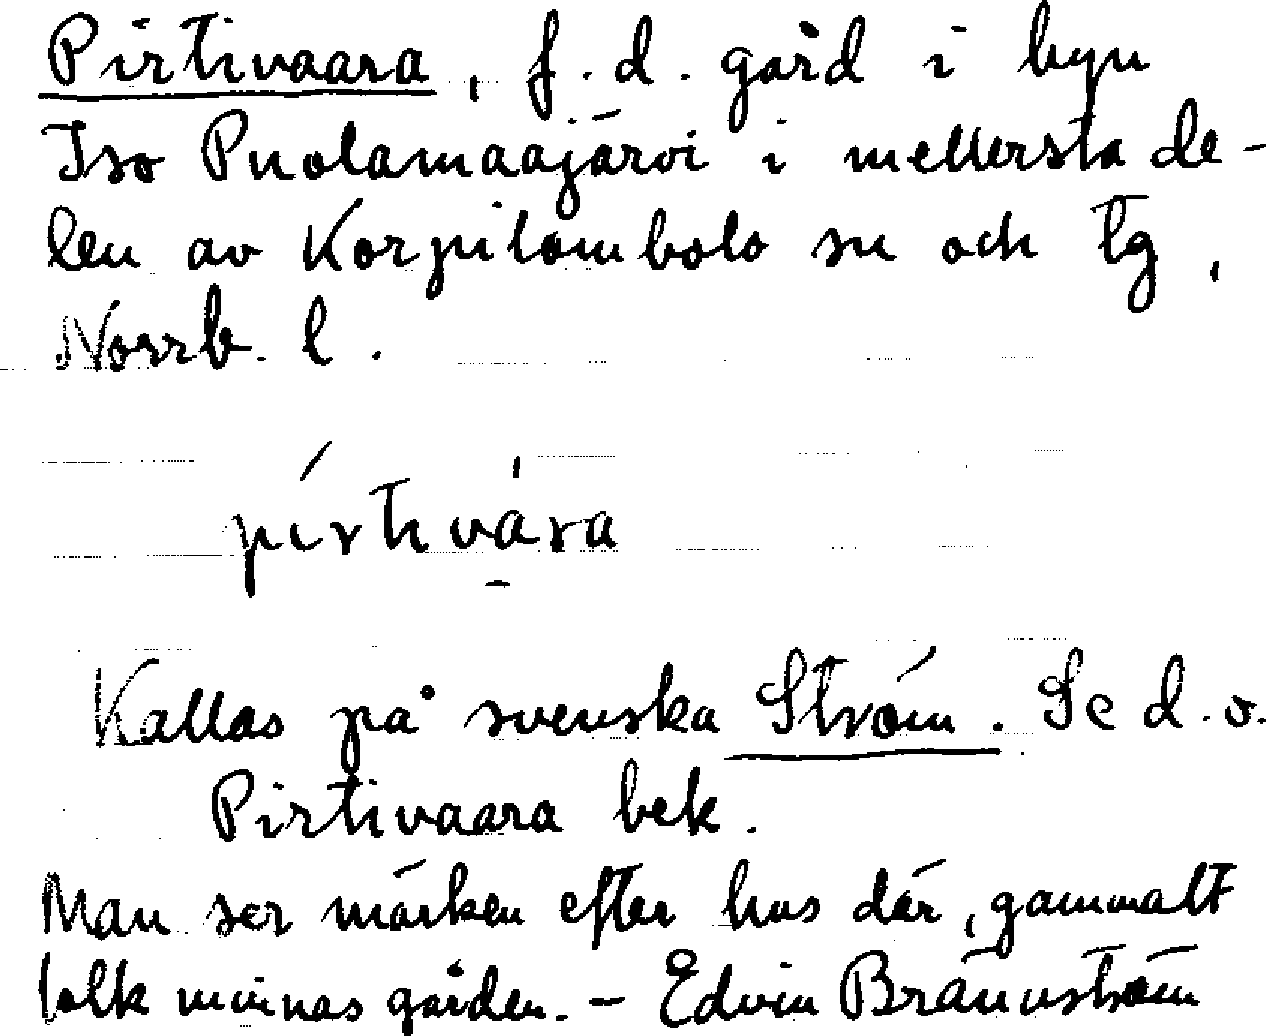 Pirtivaara, f.d. gård i byn
Iso Puolamaajärvi i mellersta de-
len av Korpilombolo sn och tg,
Norrb. l.
pírtivàra
Kallas på svenska Ström. Se d.o.
Pirtivaara bek.
Man ser märken efter hus där, gammalt
folk minnas gården. - Edvin Brännström